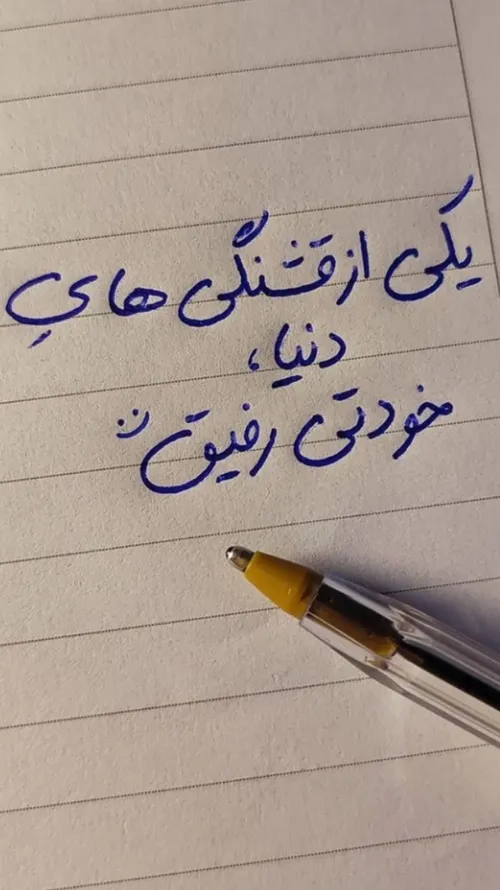 یکی از قشنگی هایِ
دنیا،
خودتی رفیق :)